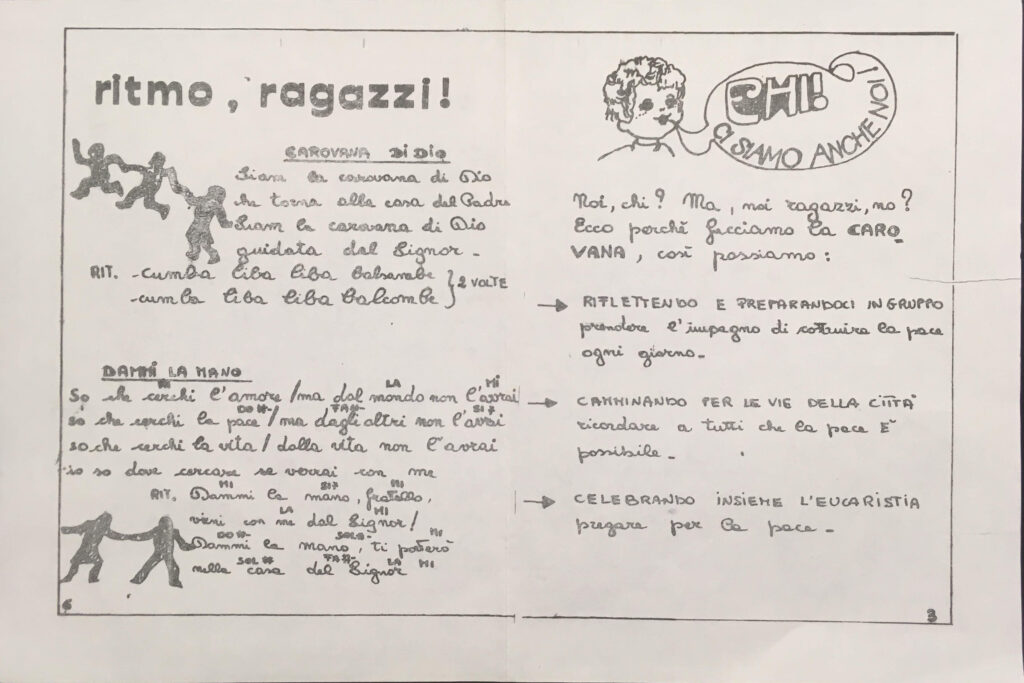 ritmo, ragazzi!
CAROVANA DI DIO
Siam la carovana di Dio
che torna alla casa del Padre
Siam la carovana di Dio
guidata dal Signor -
RIT. -cumba liba liba balsarabe
-cumba liba liba balcombe } 2 VOLTE
DAMMI LA MANO
MI LA MI
So che cerchi l'amore / ma dal mondo non l'avrai
DO#- FA#- SI7
so che cerchi la pace / ma dagli altri non l'avrai
so che cerchi la vita / dalla vita non l'avrai
io so dove cercare se verrai con me
MI SI7 MI
RIT. Dammi la mano, fratello,
LA MI
vieni con me dal Signor!
DO#- SOL#- MI
Dammi la mano, ti porterò
SOL# FA#- LA MI
nella casa del Signor
6
EHI!
CI SIAMO ANCHE NOI!
Noi, chi? Ma, noi ragazzi, no?
Ecco perchè facciamo la CARO
VANA, così possiamo:
→ RIFLETTENDO E PREPARANDOCI IN GRUPPO
prendere l'impegno di costruire la pace
ogni giorno -
→ CAMMINANDO PER LE VIE DELLA CITTÀ
ricordare a tutti che la pace È
possibile -
→ CELEBRANDO INSIEME L'EUCARISTIA
pregare per la pace -
3